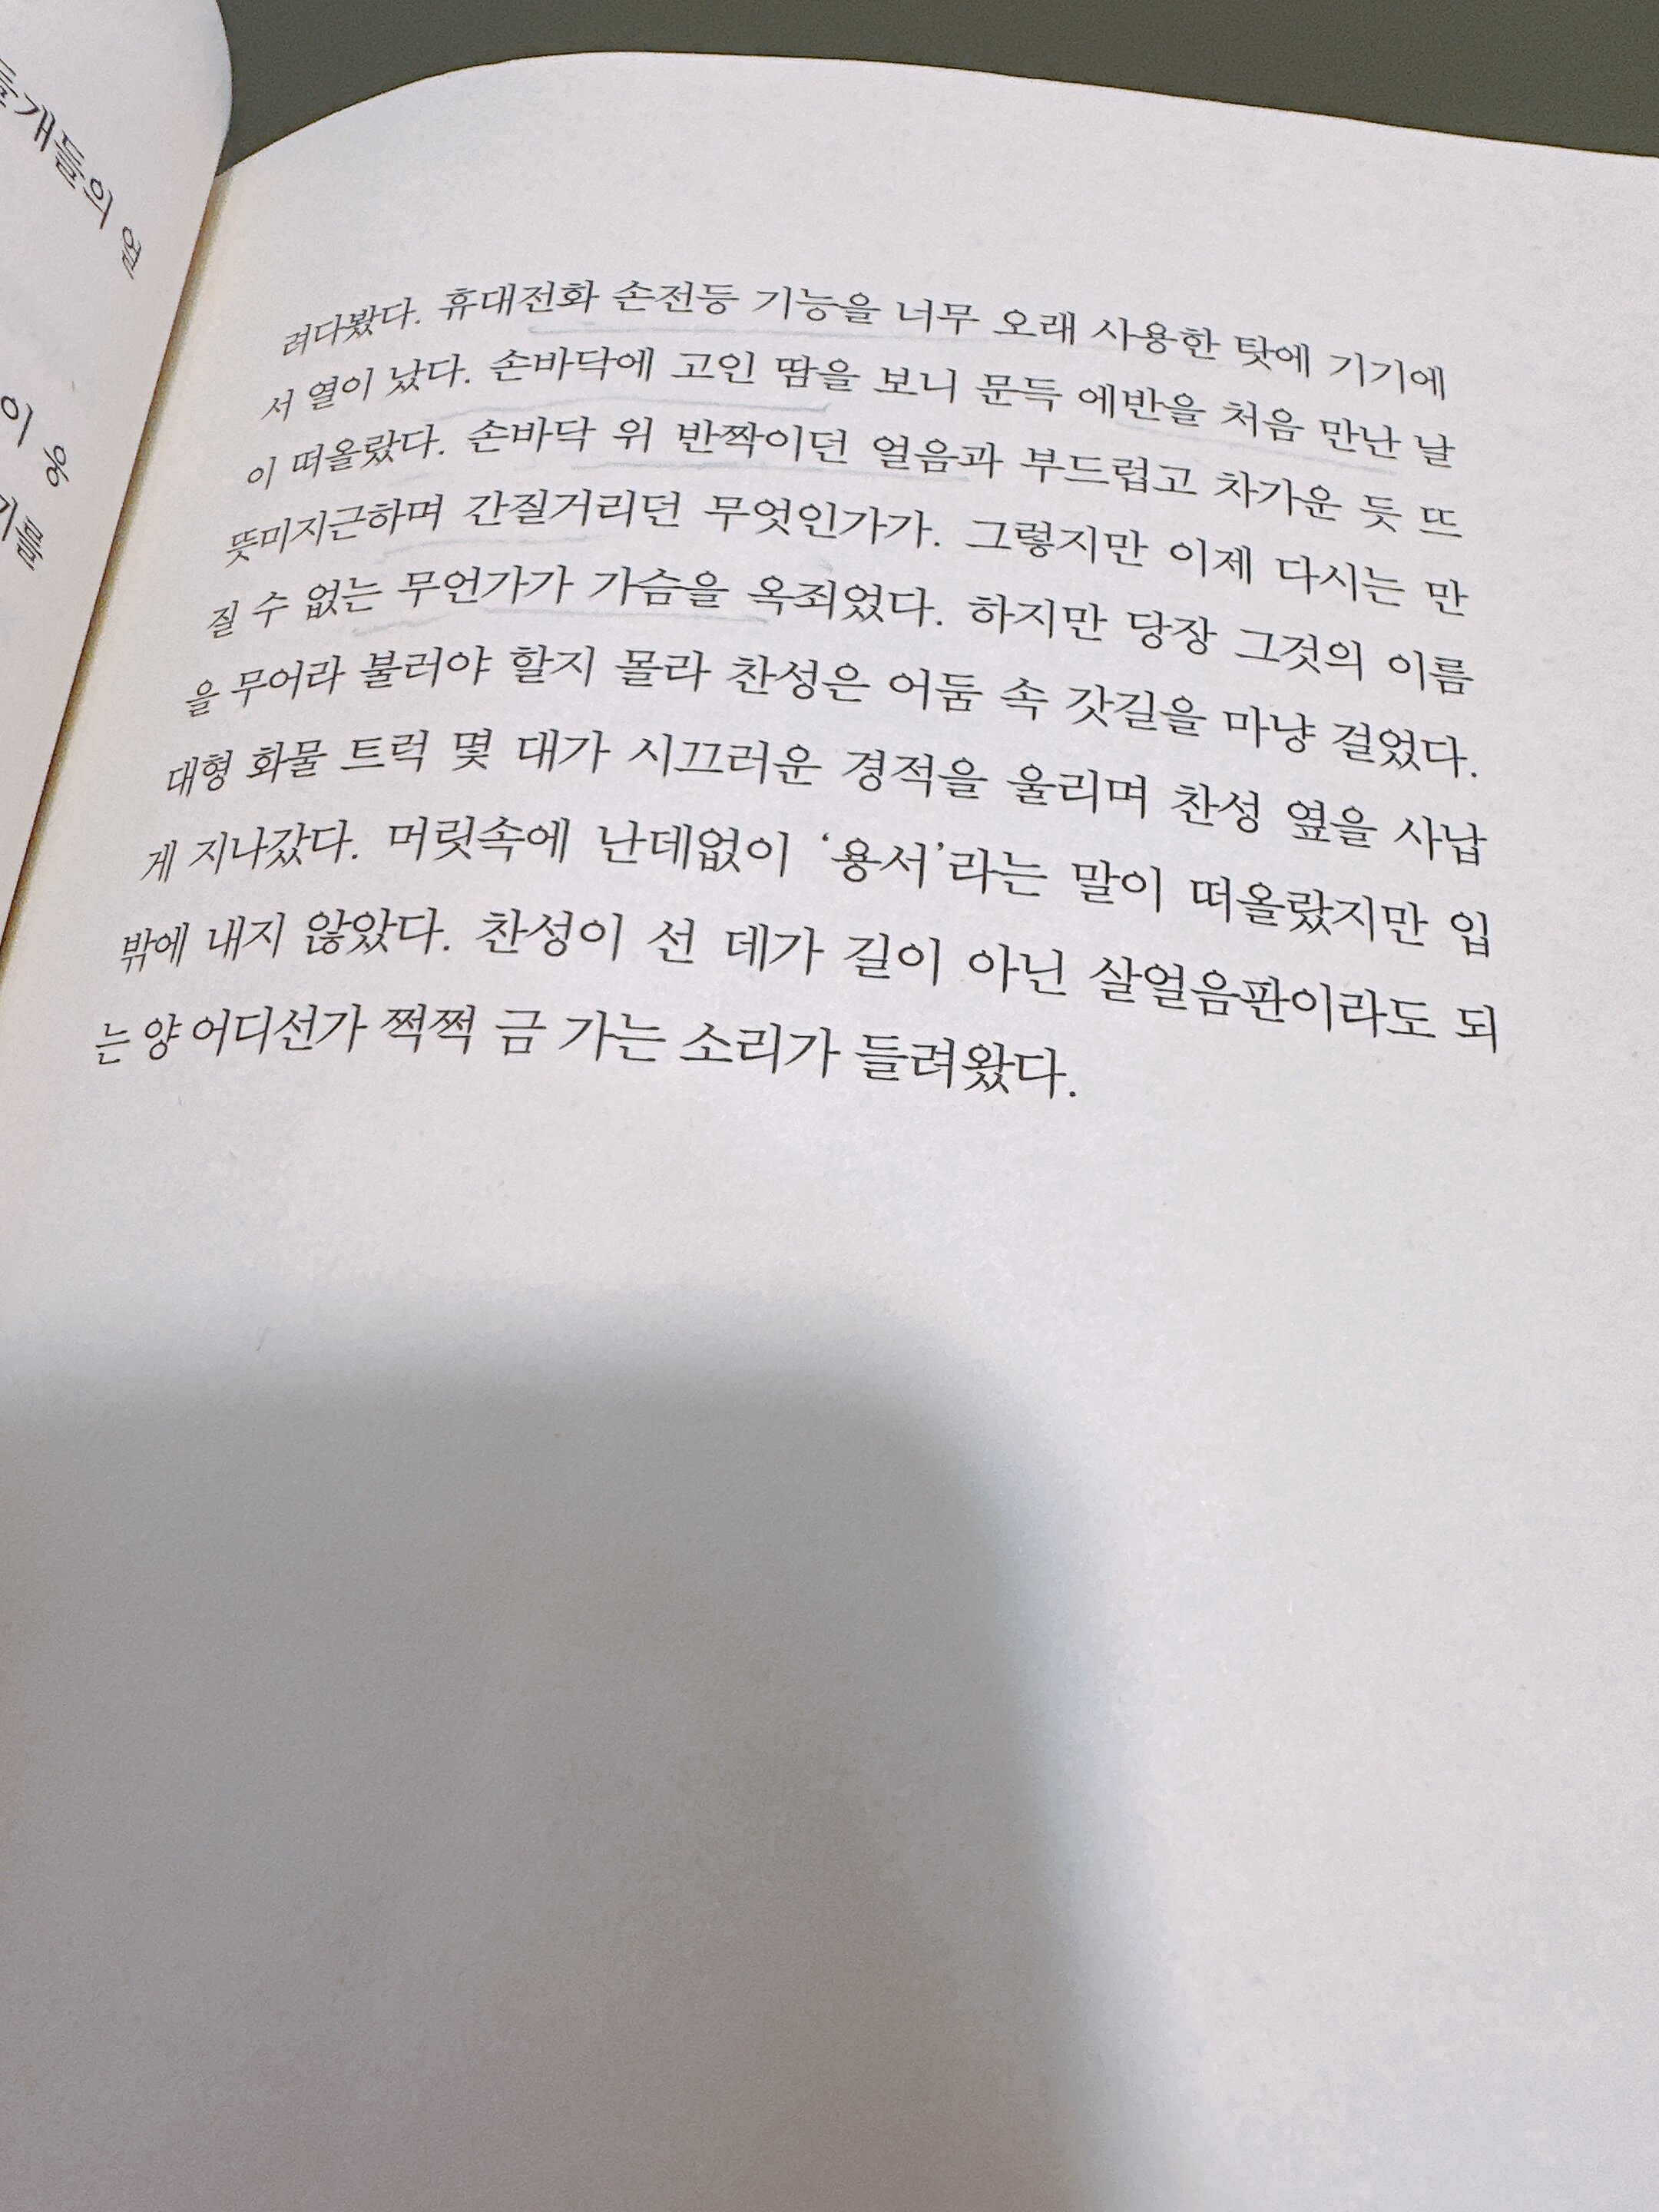 들개들의
이
러다봤다. 휴대전화 손전등 기능을 너무 오래 사용한 탓에 기기에
서 열이 났다. 손바닥에 고인 땀을 보니 문득 에반을 처음 만난 날
이 떠올랐다. 손바닥 위 반짝이던 얼음과 부드럽고 차가운 듯 뜨
뜻미지근하며 간질거리던 무엇인가가. 그렇지만 이제 다시는 만
질 수 없는 무언가가 가슴을 옥죄었다. 하지만 당장 그것의 이름
을 무어라 불러야 할지 몰라 찬성은 어둠 속 갓길을 마냥 걸었다.
대형 화물 트럭 몇 대가 시끄러운 경적을 울리며 찬성 옆을 사납
게 지나갔다. 머릿속에 난데없이 ‘용서’라는 말이 떠올랐지만 입
밖에 내지 않았다. 찬성이 선 데가 길이 아닌 살얼음판이라도 되
는 양 어디선가 쩍쩍 금 가는 소리가 들려왔다.